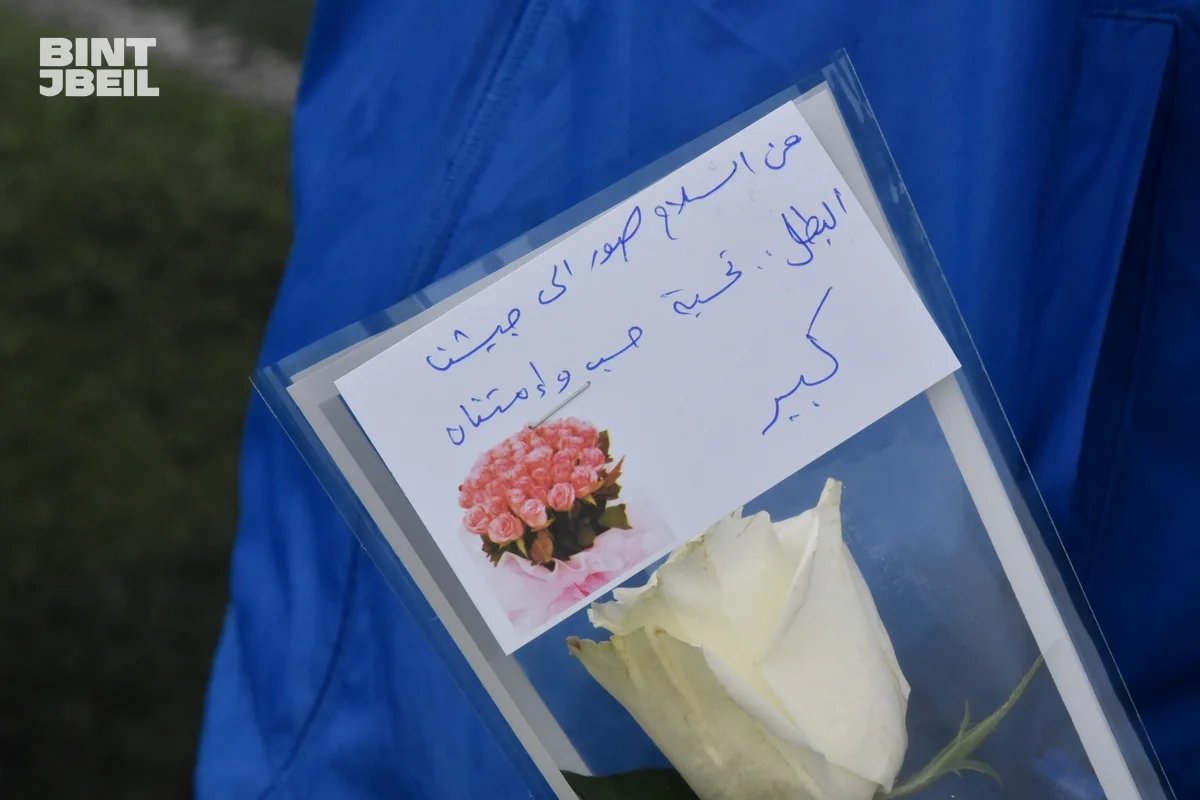 BINT
JBEIL
من السلام صور الى جيشنا
البطل.. تحية حب وإمتنان
كبير